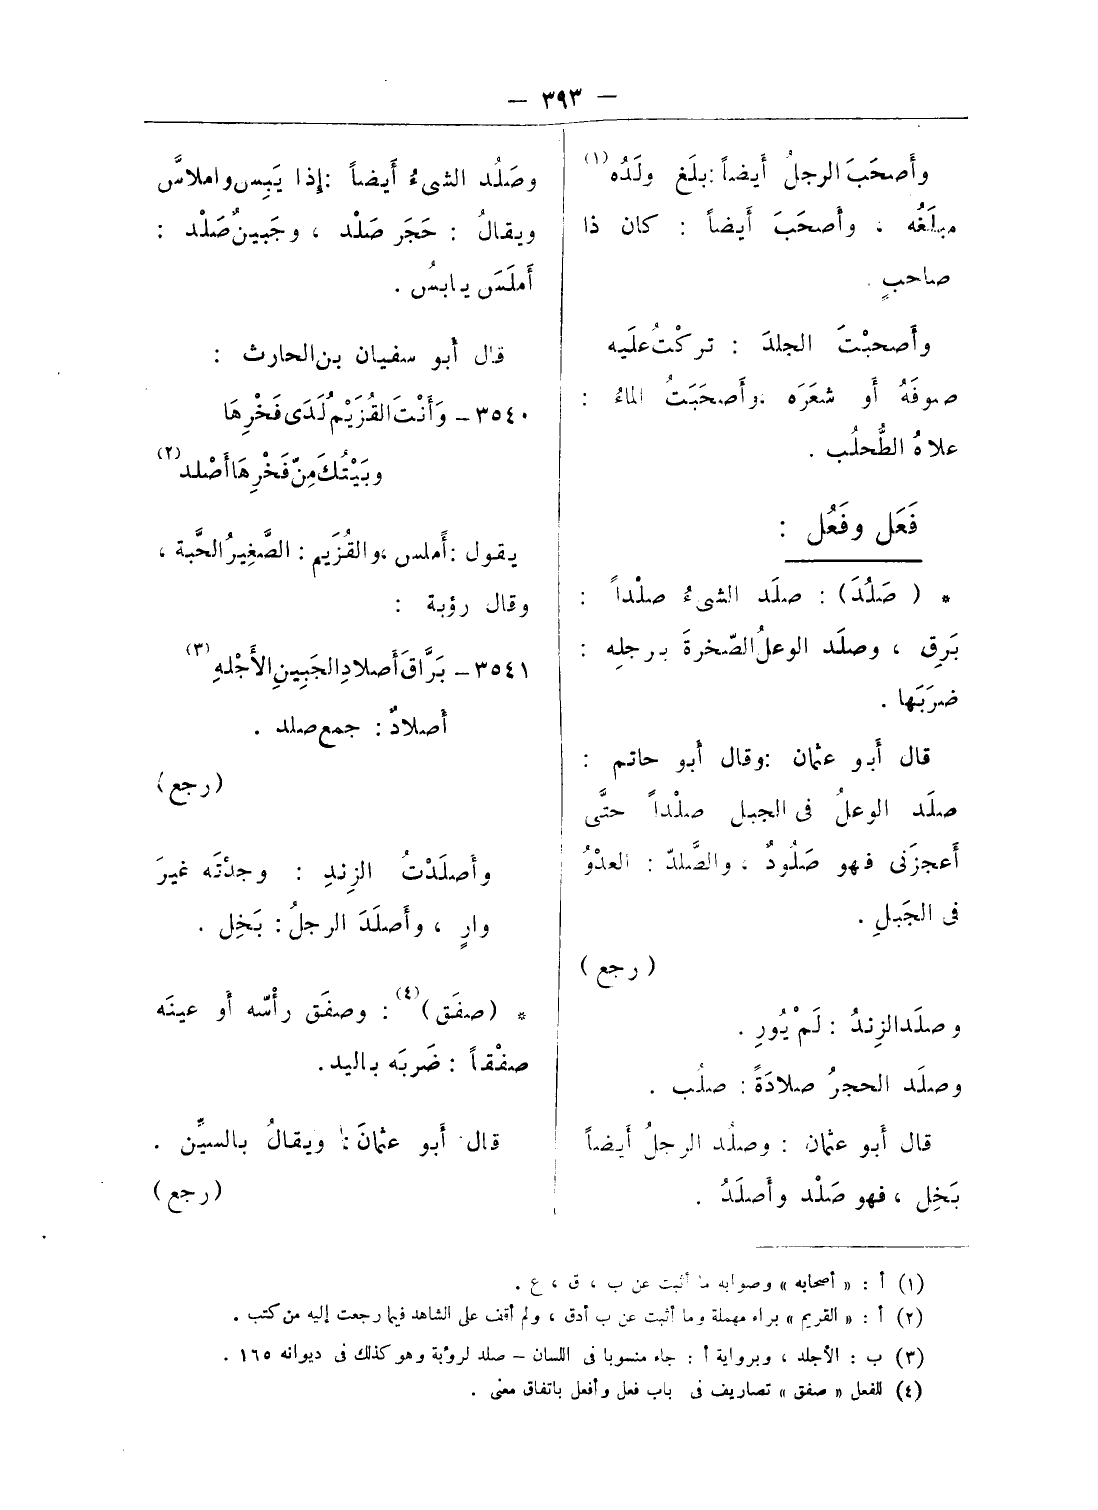 — ٣٩٣ —
وأصحَبَ الرجلُ أيضاً : بلَغ ولَدُه (١)
مبلَغُه ، وأصحَبَ أيضاً : كان ذا
صاحبٍ .
وأصحبْتَ الجلدَ : تركْتُ علَيه
صوفَهُ أو شعَرَه ، وأصحَبَتُ الماءُ :
علاهُ الطُّحلُب .
فَعَل وفَعُل :
* ( صَلُدَ ) : صلَد الشىءُ صلْداً :
بَرِق ، وصلَد الوعلُ الصّخرةَ برجلِه :
ضرَبَها .
قال أبو عثمان : وقال أبو حاتم :
صلَد الوعلُ فى الجبل صلْداً حتَّى
أعجزَنى فهو صَلُودٌ ، والصَّلدّ : العدْوُ
فى الجَبلِ .
( رجع )
وصلَد الزِندُ : لَمْ يُورِ .
وصلَد الحجرُ صلادَةً : صلُب .
قال أبو عثمان : وصلُد الرجلُ أيضاً
بَخِل ، فهو صَلْد وأصلَدُ .
وصَلُد الشىءُ أيضاً : إذا يَبِس واملاسَّ
ويقالُ : حَجَر صَلْد ، وجَبينٌ صَلْد :
أملَسَ يابسُ .
قال أبو سفيان بن الحارث :
٣٥٤٠ – وَأَنْتَ القُزَيْمُ لَدَى فَخْرِهَا
وبَيْتُكَ مِنّ فَخْرِهَا أصْلد (٢)
يقول : أملس ، والقُزَيم : الصَّغِيرُ الحَّبة ،
وقال رؤبة :
٣٥٤١ – بَرَّاقَ أصلادِ الجَبِينِ الأجْلهِ (٣)
أصلادٌ : جمع صلد .
( رجع )
وأصلَدْتُ الزِندِ : وجدْتَه غيرَ
وارٍ ، وأصلَدَ الرجلُ : بَخِل .
* ( صفَق ) (٤) : وصفَق رأْسّه أو عينَه
صفْقاً : ضَربَه باليد .
قال أبو عثمانَ : ويقالُ بالسيِّن .
( رجع )
(١) أ : « أصحابه » وصوابه ما أثبت عن ب ، ق ، ع .
(٢) أ : « القريم » براء مهملة وما أثبت عن ب أدق ، ولم أقف على الشاهد فيما رجعت إليه من كتب .
(٣) ب : الأجلد ، وبرواية أ : جاء منسوبا فى اللسان – صلد لرؤبة وهو كذلك فى ديوانه ١٦٥ .
(٤) للفعل « صفق » تصاريف فى باب فعل وأفعل باتفاق معنى .